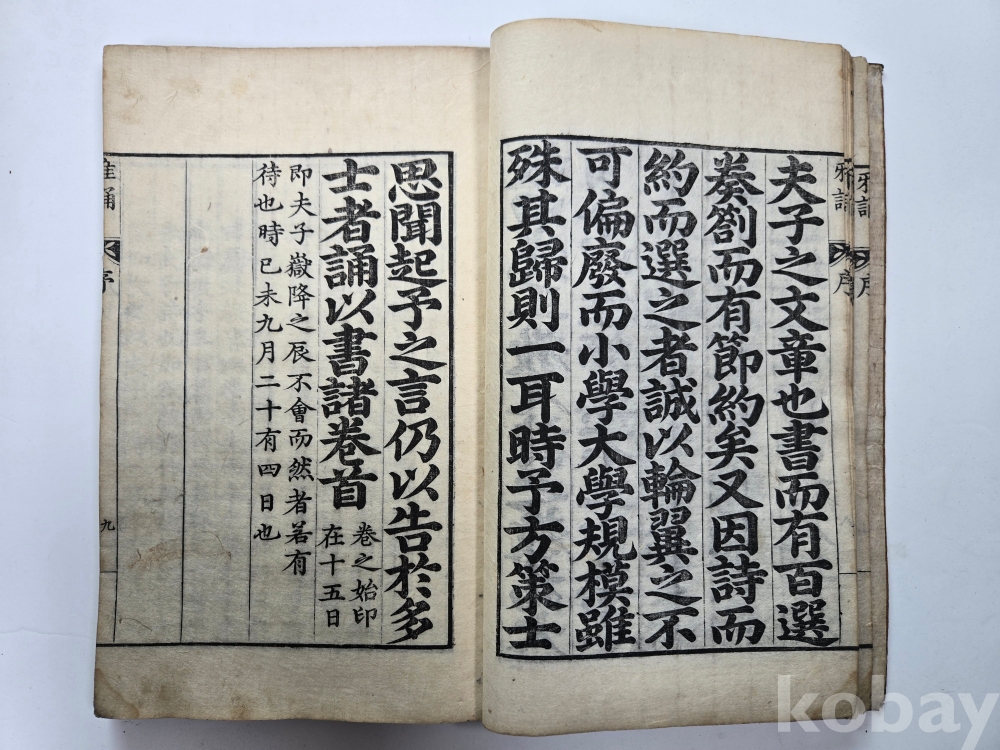 夫子之文章也書而有百選
奏劄而有節約矣又因詩而
約而選之者誠以輪翼之不
可偏廢而小學大學規模雖
殊其歸則一耳時予方策士
思聞起予之言仍以告於多
士者誦以書諸卷首
卷之始印
在十五日
即夫子嶽降之辰不會而然者若有
待也時己未九月二十有四日也
雅誦
序
九
雅誦
序
雅誦
序
kobay